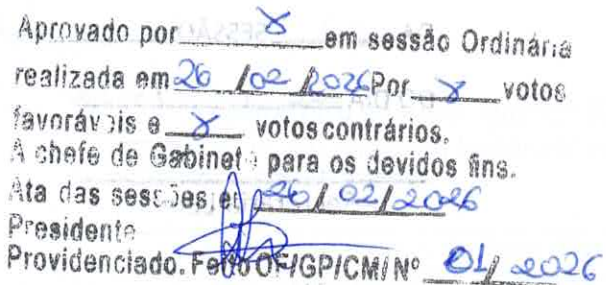 Aprovado por x em sessão Ordinária
realizada em 26/02/2026 Por x votos
favoráveis e x votos contrários.
A chefe de Gabinete para os devidos fins.
Ata das sessões, em 26/02/2026
Presidente
Providenciado. Feito OF/GP/CM/Nº 01/2026